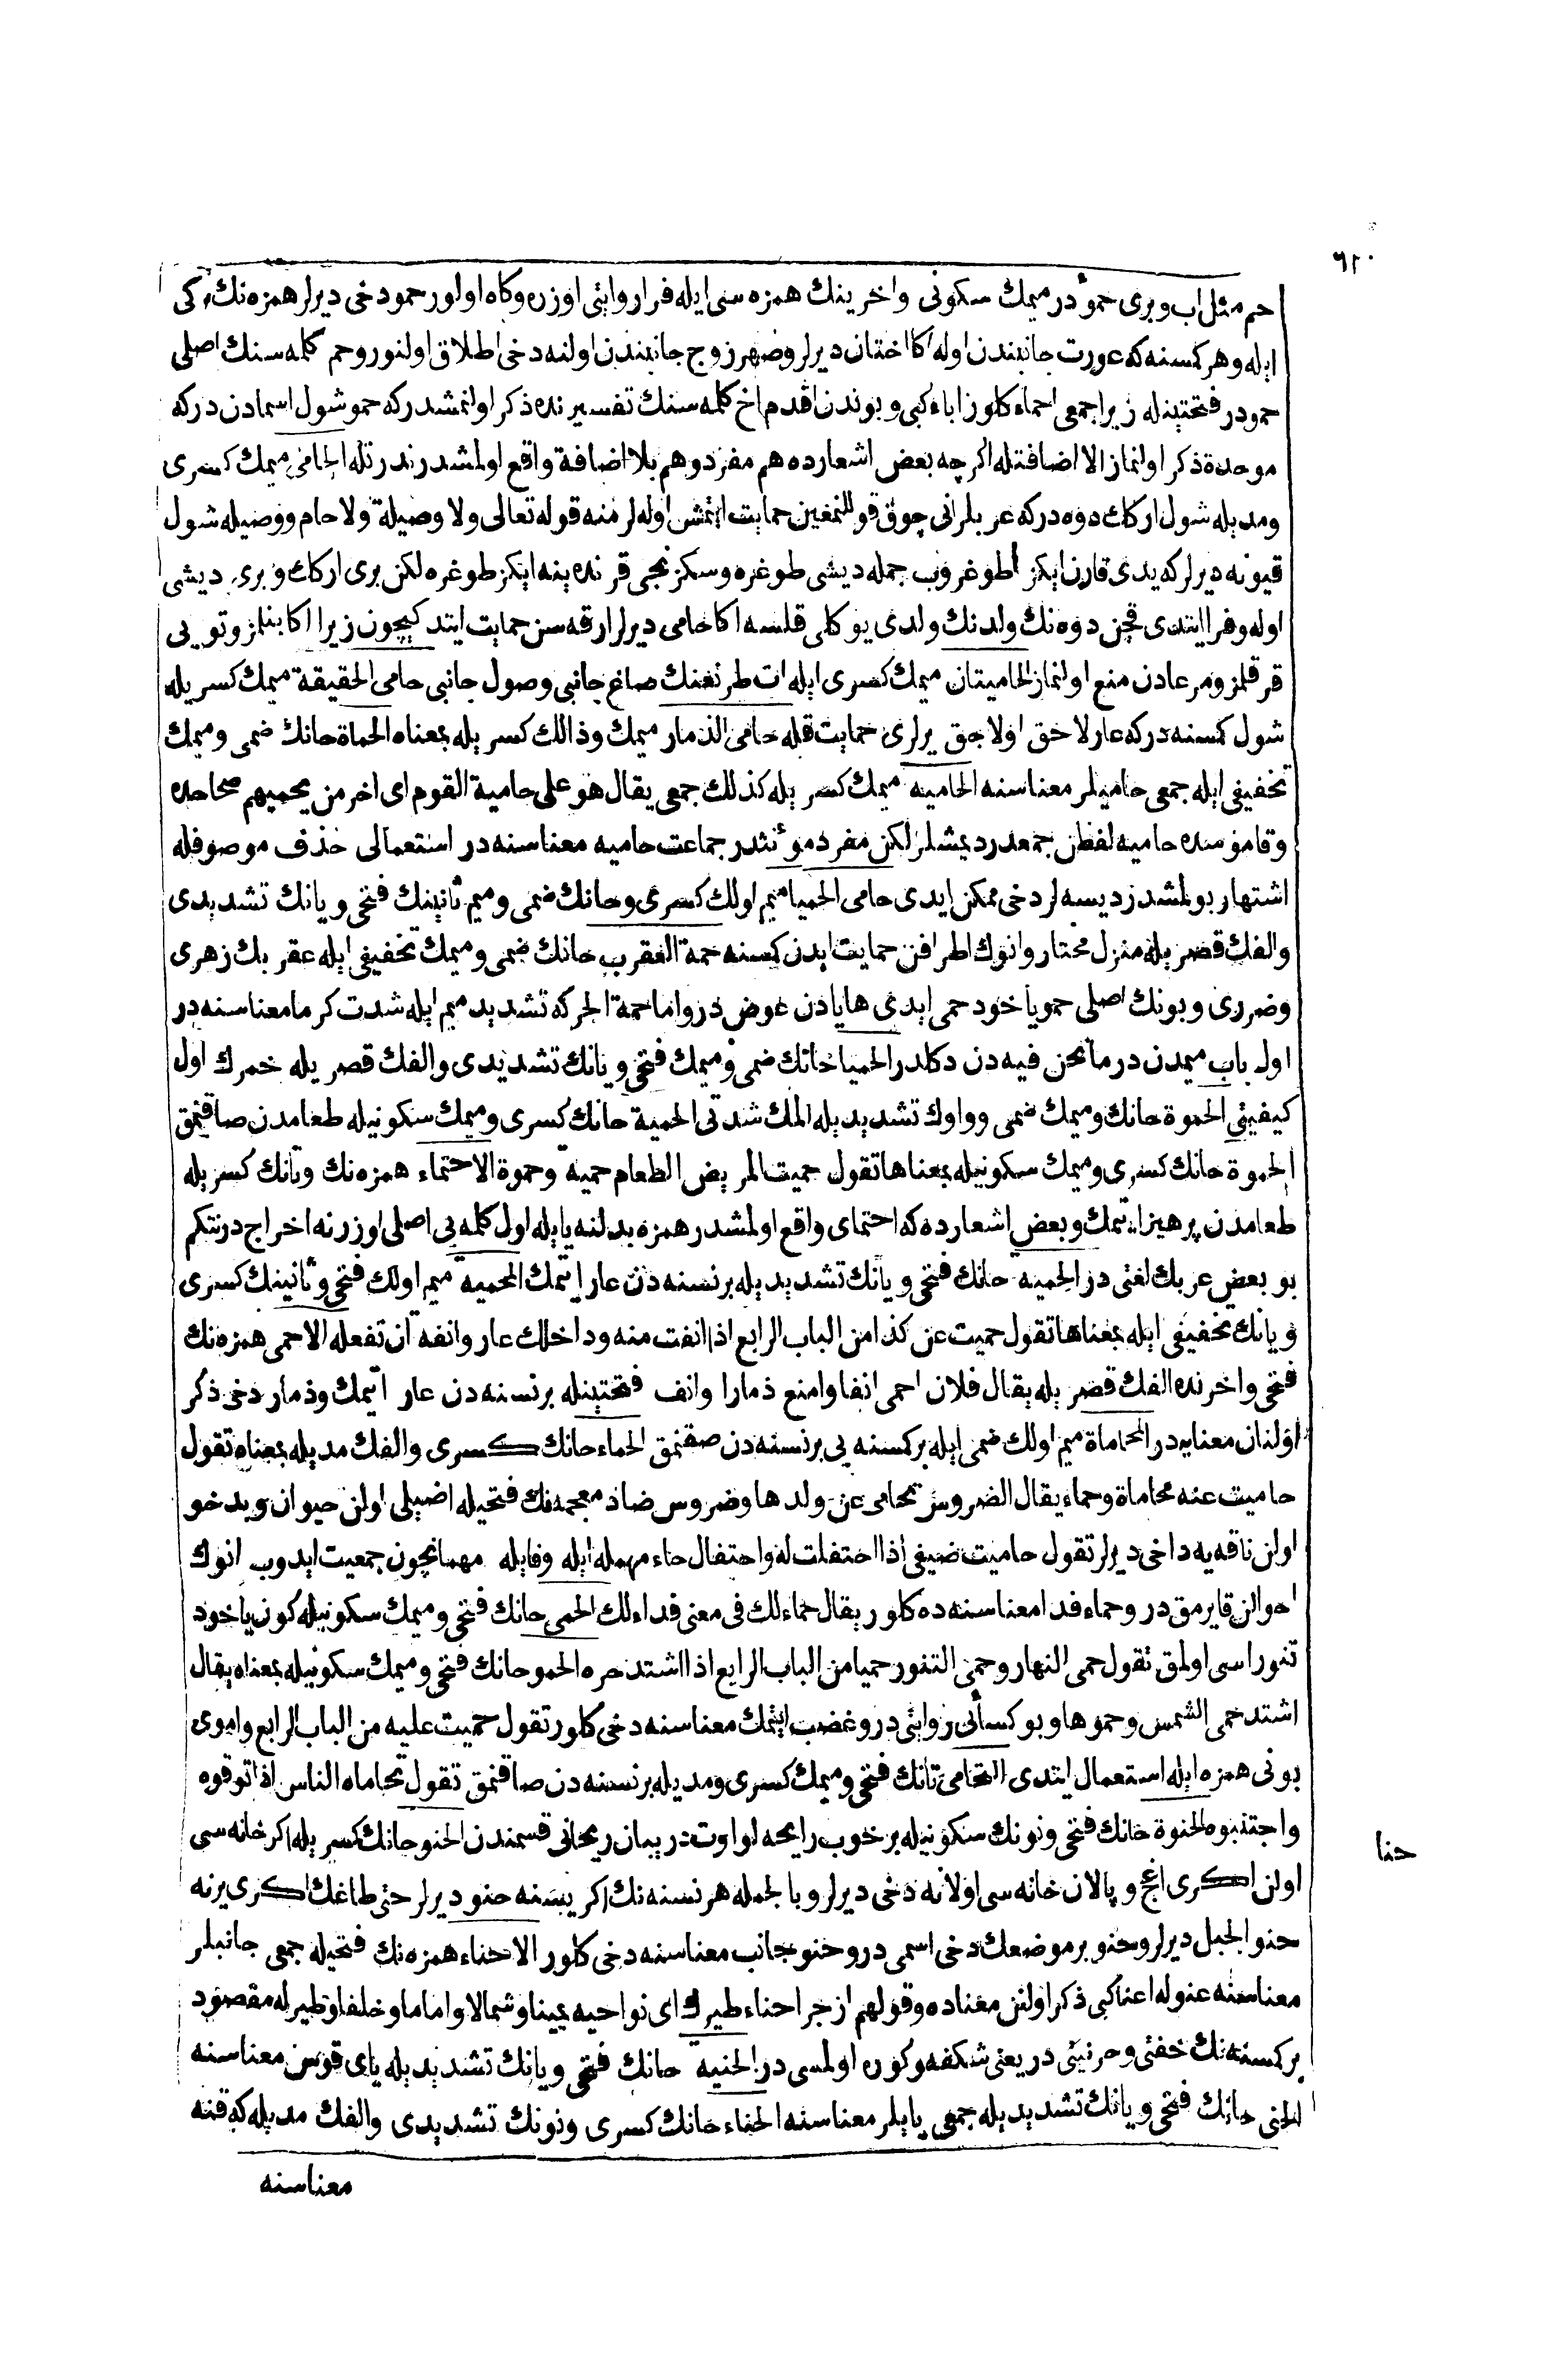 ٦٢٠
حم مثل اب وبرى حموٴ در ميمك سكونى واخرينك همزه سى ايله فرا روايتى اوزره وكاه اولور حمو دخى ديرلر همزه نك تركى
ايله وهر كمسنه كه عورت جانبندن اوله اكا اختان ديرلر وصهر زوج جانبندن اولنه دخى اطلاق اولنور وحم كلمه سنك اصلى
حمودر فتحتينله زيرا جمعى احماء كلور اباء كبى وبوندن اقدم اخ كلمه سنك تفسيرنده ذكر اولنمشدر كه حمو شول اسمادن در كه
موحدة ذكر اولنماز الا اضافتله اكرچه بعض اشعارده هم مفرد وهم بلا اضافة واقع اولمشدر ندرتله الحامى ميمك كسرى
ومد يله شول اركك دوه در كه عربلر انى چوق قوللنمغين حمايت ايتمش اوله لر منه قوله تعالى ولا وصيلة ولا حام ووصيله شول
قيونه ديرلر كه يدى قارن ايكز طوغروب جمله ديشى طوغره وسكزنجى قرنده ينه ايكز طوغره لكن برى اركك وبرى ديشى
اوله وفرا ايتدى قچن دوه نك ولدنك ولدى يوكلى قلسه اكا حامى ديرلر ارقه سن حمايت ايتدكيچون زيرا اكا بنلمز وتويى
قرقلمز ومرعادن منع اولنماز الحاميتان ميمك كسرى ايله ات طرنغنك صاغ جانبى وصول جانبى حامى الحقيقة ميمك كسر يله
شول كمسنه در كه عار لاحق اولاجق يرلرى حمايت قله حامى الذمار ميمك وذالك كسر يله بمعناه الحماة حانك ضمى وميمك
تخفيفى ايله جمعى حاميلر معناسنه الحاميه ميمك كسر يله كذلك جمعى يقال هو على حامية القوم اى اخر من يحميهم صحاحده
وقاموسده حاميه لفظن جمعدر ديمشلر لكن مفرد موٴنثدر جماعت حاميه معناسنه در استعمالى حذف موصوفله
اشتهار بولمشدر ديسه لر دخى ممكن ايدى حامى الحميا ميم اولك كسرى وحانك ضمى وميم ثانينك فتحى ويانك تشديدى
والفك قصر يله منزل مختار وانوك اطرافن حمايت ايدن كمسنه حمة العقرب حانك ضمى وميمك تخفيفى ايله عقربك زهرى
وضررى وبونك اصلى حمو ياخود حمى ايدى ها يادن عوض در واما حمة الحر كه تشديد ميم ايله شدت كرما معناسنه در
اول باب ميمدن در ما نحن فيه دن دكلدر الحميا حانك ضمى وميمك فتحى ويانك تشديدى والفك قصر يله خمرك اول
كيفيتى الحموة حانك وميمك ضمى وواوك تشديد يله المك شدتى الحمية حانك كسرى وميمك سكونيله طعامدن صاقنمق
الحموة حانك كسرى وميمك سكونيله بمعناها تقول حميت المريض الطعام حمية وحموة الاحتماء همزه نك وتانك كسر يله
طعامدن پرهيز ايتمك وبعض اشعارده كه احتماى واقع اولمشدر همزه بدلنه يا يله اول كلمه يى اصلى اوزرنه اخراج در نتكم
بو بعض عربك لغتى در الحميه حانك فتحى ويانك تشديد يله برنسنه دن عار ايتمك المحميه ميم اولك فتحى وثانينك كسرى
ويانك تخفيفى ايله بمعناها تقول حميت عن كذا من الباب الرابع اذا انفت منه وداخلك عار وانفه ان تفعله الاحمى همزه نك
فتحى واخرنده الفك قصر يله يقال فلان احمى انفا وامنع ذمارا وانف فتحتينله برنسنه دن عار ايتمك وذمار دخى ذكر
اولنان معنايه در المحاماة ميم اولك ضمى ايله بر كمسنه يى برنسنه دن صقنمق الحماء حانك كسرى والفك مد يله بمعناه تقول
حاميت عنه محاماة وحماء يقال الضروس تحامى عن ولدها وضروس ضاد معجمه نك فتحيله اضيلى اولن حيوان وبدخو
اولن ناقه يه داخى ديرلر تقول حاميت ضيفى اذا احتفلت له واحتفال حاء مهمله ايله وفايله مهمانچون جمعيت ايدوب انوك
احوالن قايرمق در وحماء فدا معناسنه ده كلور يقال حماء لك فى معنى فداء لك الحمى حانك فتحى وميمك سكونيله كون ياخود
تنور اسى اولمق تقول حمى النهار وحمى التنور حميا من الباب الرابع اذا اشتد حره الحمو حانك فتحى وميمك سكونيله بمعناه يقال
اشتد حمى الشمس وحموها وبو كسائى روايتى در وغضب ايتمك معناسنه دخى كلور تقول حميت عليه من الباب الرابع واموى
بونى همزه ايله استعمال ايتدى التحامى تانك فتحى وميمك كسرى ومد يله برنسنه دن صاقنمق تقول تحاماه الناس اذا توقوه
واجتنبوه الحنوة حانك فتحى ونونك سكونيله بر خوب رايحه لو اوت در يبان ريحانى قسمندن الحنو حانك كسر يله اكر خانه سى
اولن اكرى اغج وپالان خانه سى اولانه دخى ديرلر وبالجمله هر نسنه نك اكريسنه حنو ديرلر حتى طاغك اكرى يرنه
حنو الجبل ديرلر وحنو بر موضعك دخى اسمى در وحنو جانب معناسنه دخى كلور الاحناء همزه نك فتحيله جمعى جانبلر
معناسنه عنو له اعنا كبى ذكر اولنن معناده وقولهم ازجر احناء طيرك اى نواحيه يمينا وشمالا واماما وخلفا وطيرله مقصود
بر كمسنه نك خفتى وحرنيتى در يعنى شكفه وكوره اولمسى در الحنيه حانك فتحى ويانك تشديد يله ياى قوس معناسنه
الحنى حانك فتحى ويانك تشديد يله جمعى يايلر معناسنه الحناء حانك كسرى ونونك تشديدى والفك مد يله كه قنه
حنا
معناسنه